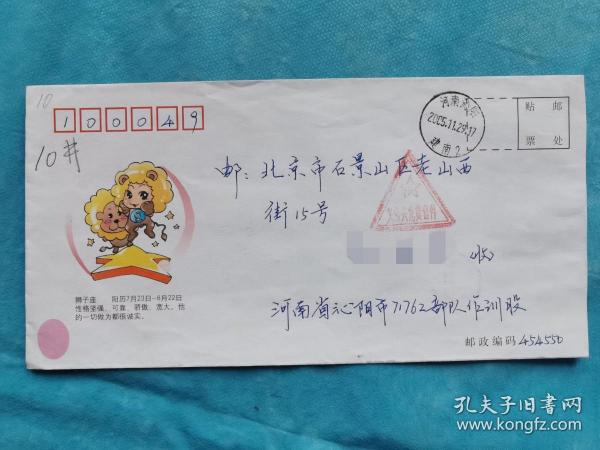 10
100049
10井
贴 邮
票 处
2005.11.29.17
邮：北京市石景山区老山西
街15号
收
狮子座 阳历7月23日-8月22日
性格坚强、可靠、骄傲、宽大。他
的一切做为都很诚实。
河南省沁阳市71762部队作训股
邮政编码 454550
孔夫子旧书网
www.kongfz.com